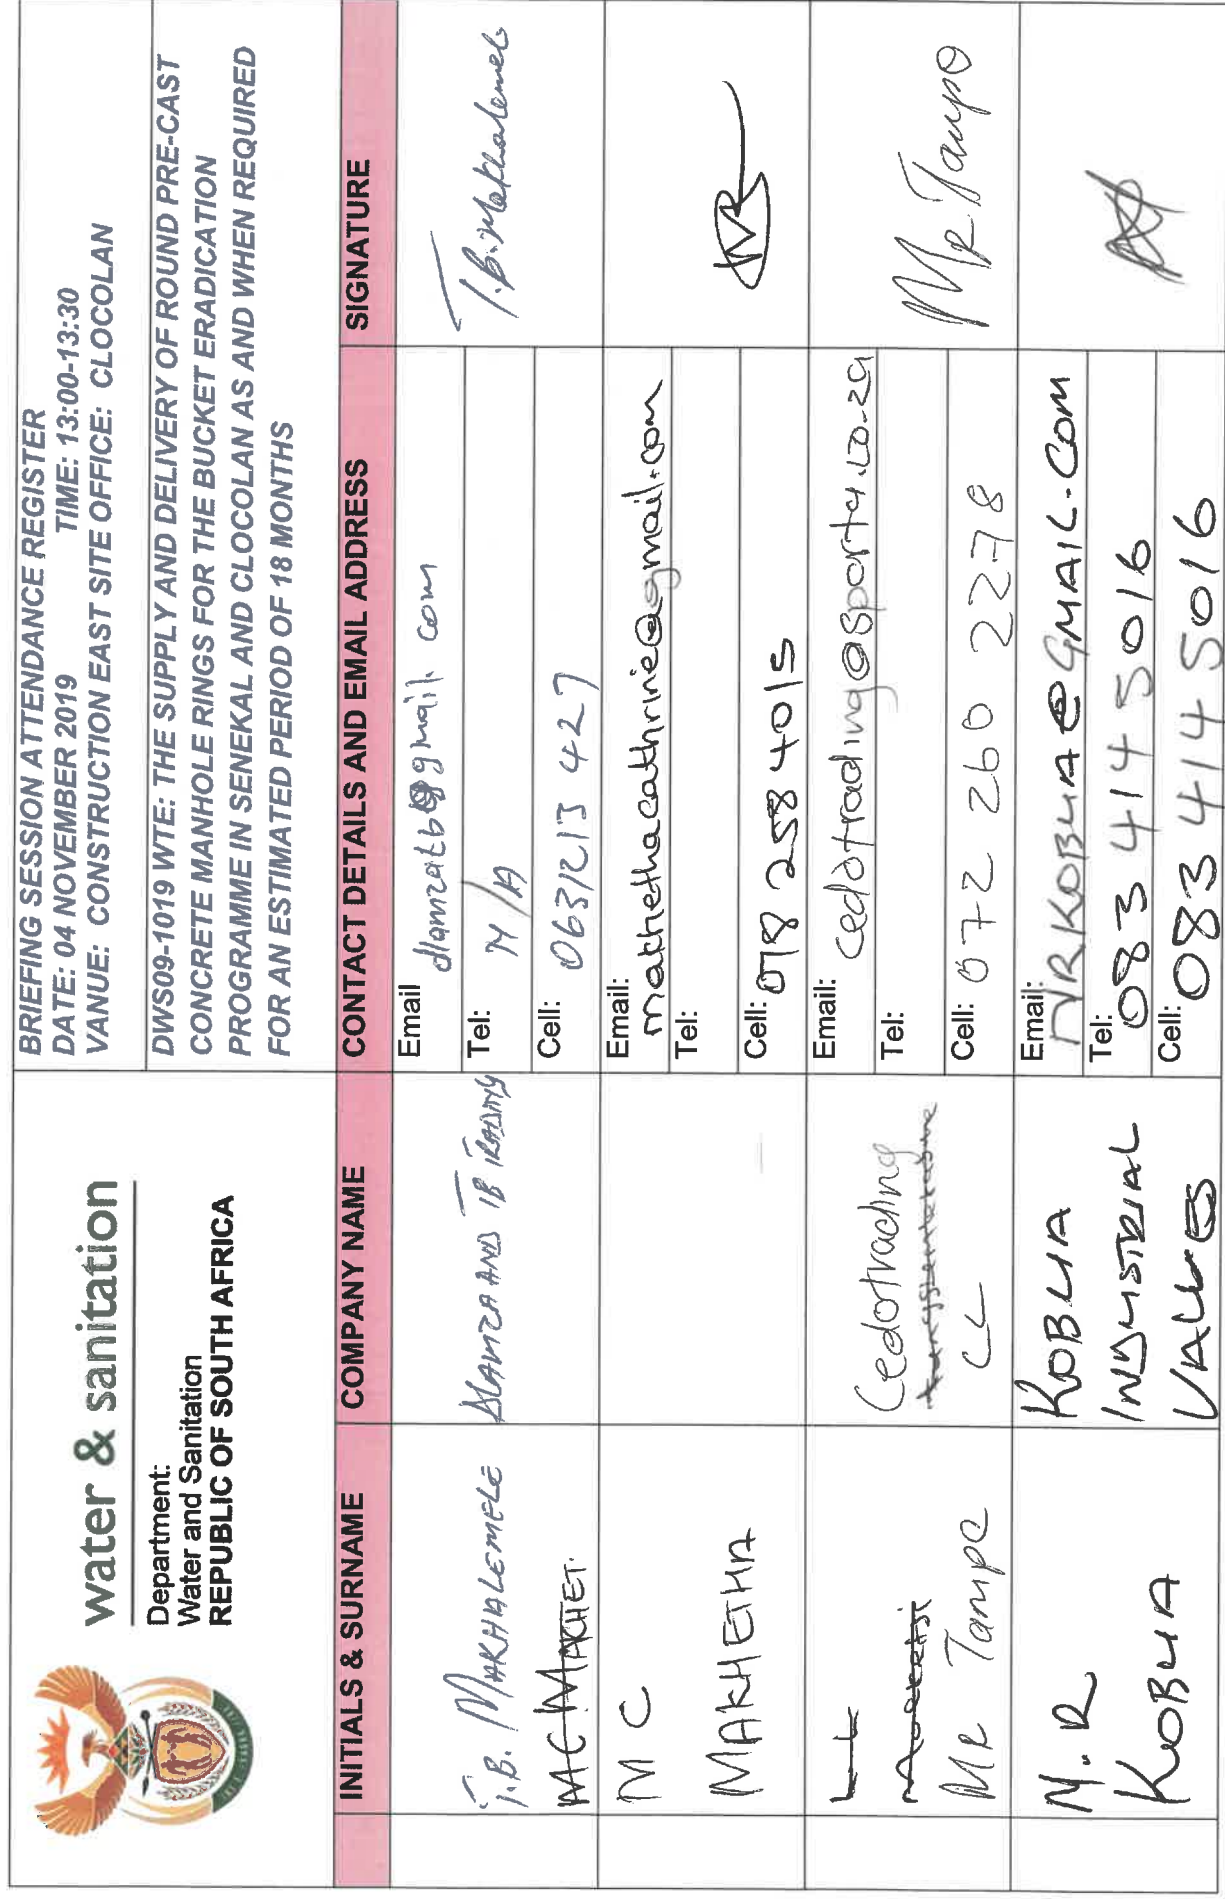 water & sanitation
Department:
Water and Sanitation
REPUBLIC OF SOUTH AFRICA
BRIEFING SESSION ATTENDANCE REGISTER
DATE: 04 NOVEMBER 2019 TIME: 13:00-13:30
VANUE: CONSTRUCTION EAST SITE OFFICE: CLOCOLAN
DWS09-1019 WTE: THE SUPPLY AND DELIVERY OF ROUND PRE-CAST
CONCRETE MANHOLE RINGS FOR THE BUCKET ERADICATION
PROGRAMME IN SENEKAL AND CLOCOLAN AS AND WHEN REQUIRED
FOR AN ESTIMATED PERIOD OF 18 MONTHS
INITIALS & SURNAME COMPANY NAME CONTACT DETAILS AND EMAIL ADDRESS SIGNATURE
T.B. MAKHALEMELE
MC MAKHET
DLAMZA AND TB TRADING
Email
dlamzatb@gmail com
Tel: N/A
Cell: 063 1213 427
T.B. Makhalemele
M C
MAKHETHA
Email:
makhethacathrine@gmail.com
Tel:
Cell: 078 258 4015
MR Tampe
Cedotrading
CC
Email: cedotrading@
Tel:
Cell: 072 260 2278
MR Tampo
M.R
KOBUA
KOBUA
INDUSTRIAL
VALVES
Email: MRKOBUA@GMAIL.COM
Tel: 083 414 5016
Cell: 083 414 5016